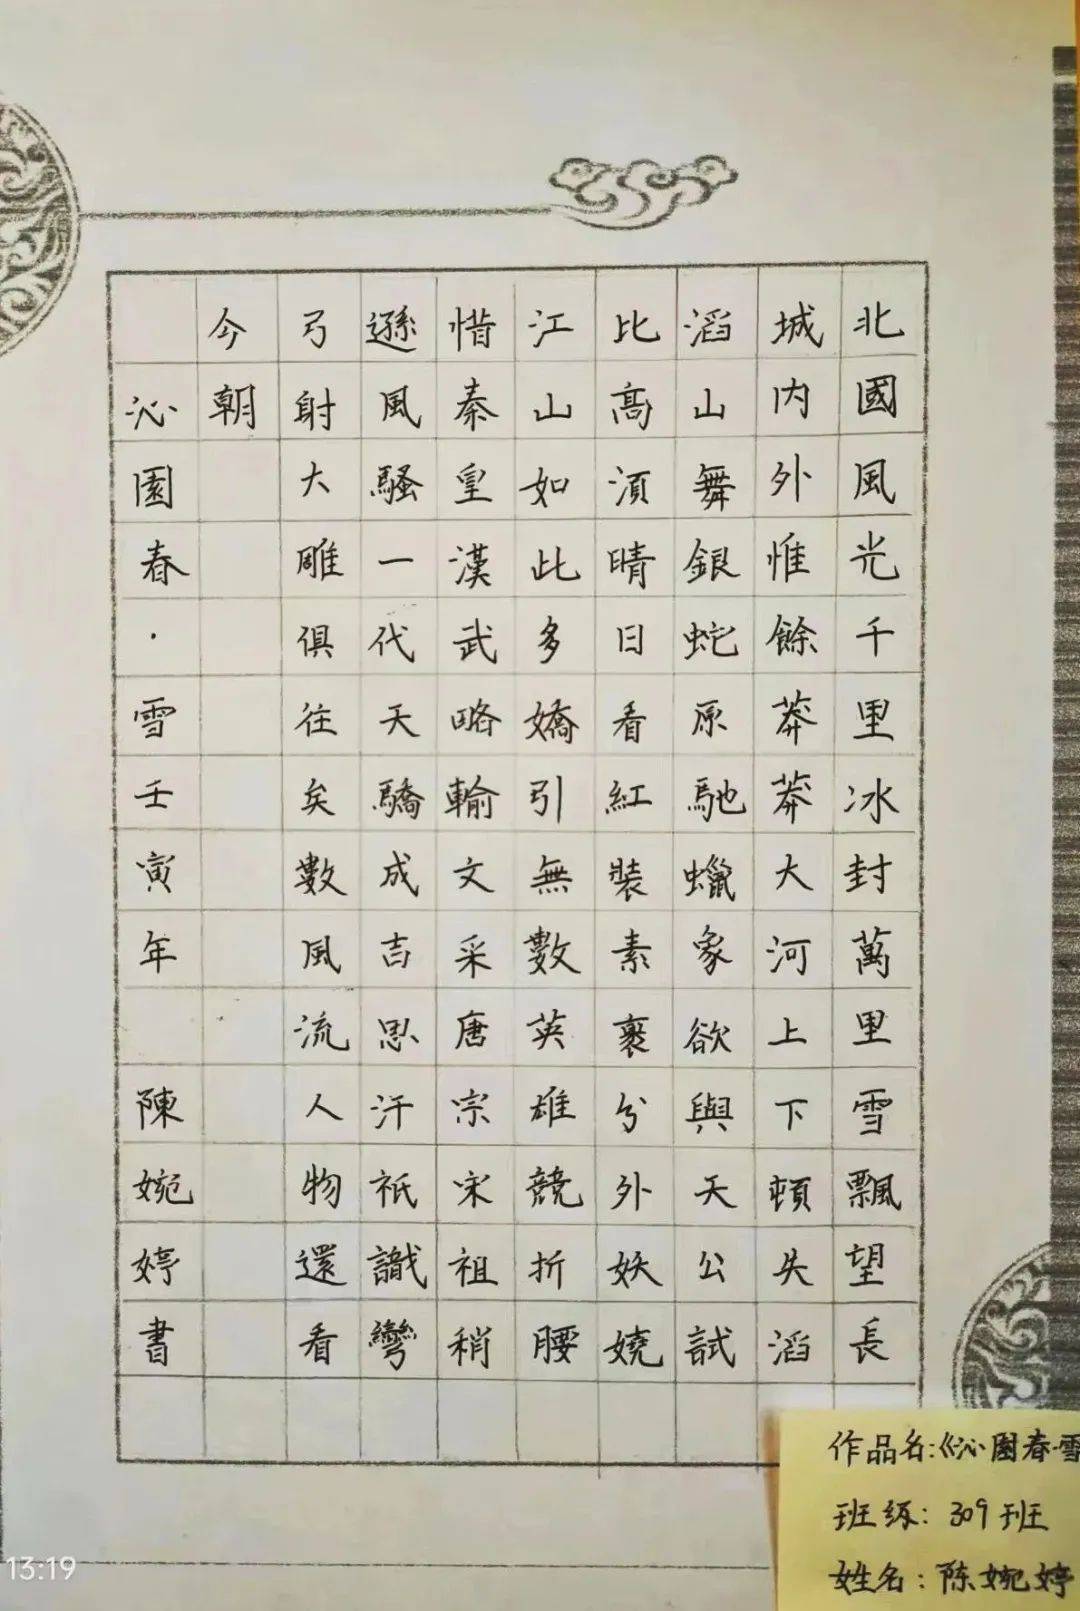 北國風光千里冰封萬里雪飄望長
城内外惟餘莽莽大河上下頓失滔
滔山舞銀蛇原馳蠟象欲與天公試
比高須晴日看紅裝素裹分外妖嬈
江山如此多嬌引無數英雄競折腰
惜秦皇漢武略輸文采唐宗宋祖稍
遜風騷一代天驕成吉思汗祇識彎
弓射大雕俱往矣數風流人物還看
今朝
沁園春·雪壬寅年 陳婉婷書
作品名:《沁园春·雪
班级:309班
姓名:陈婉婷
13:19